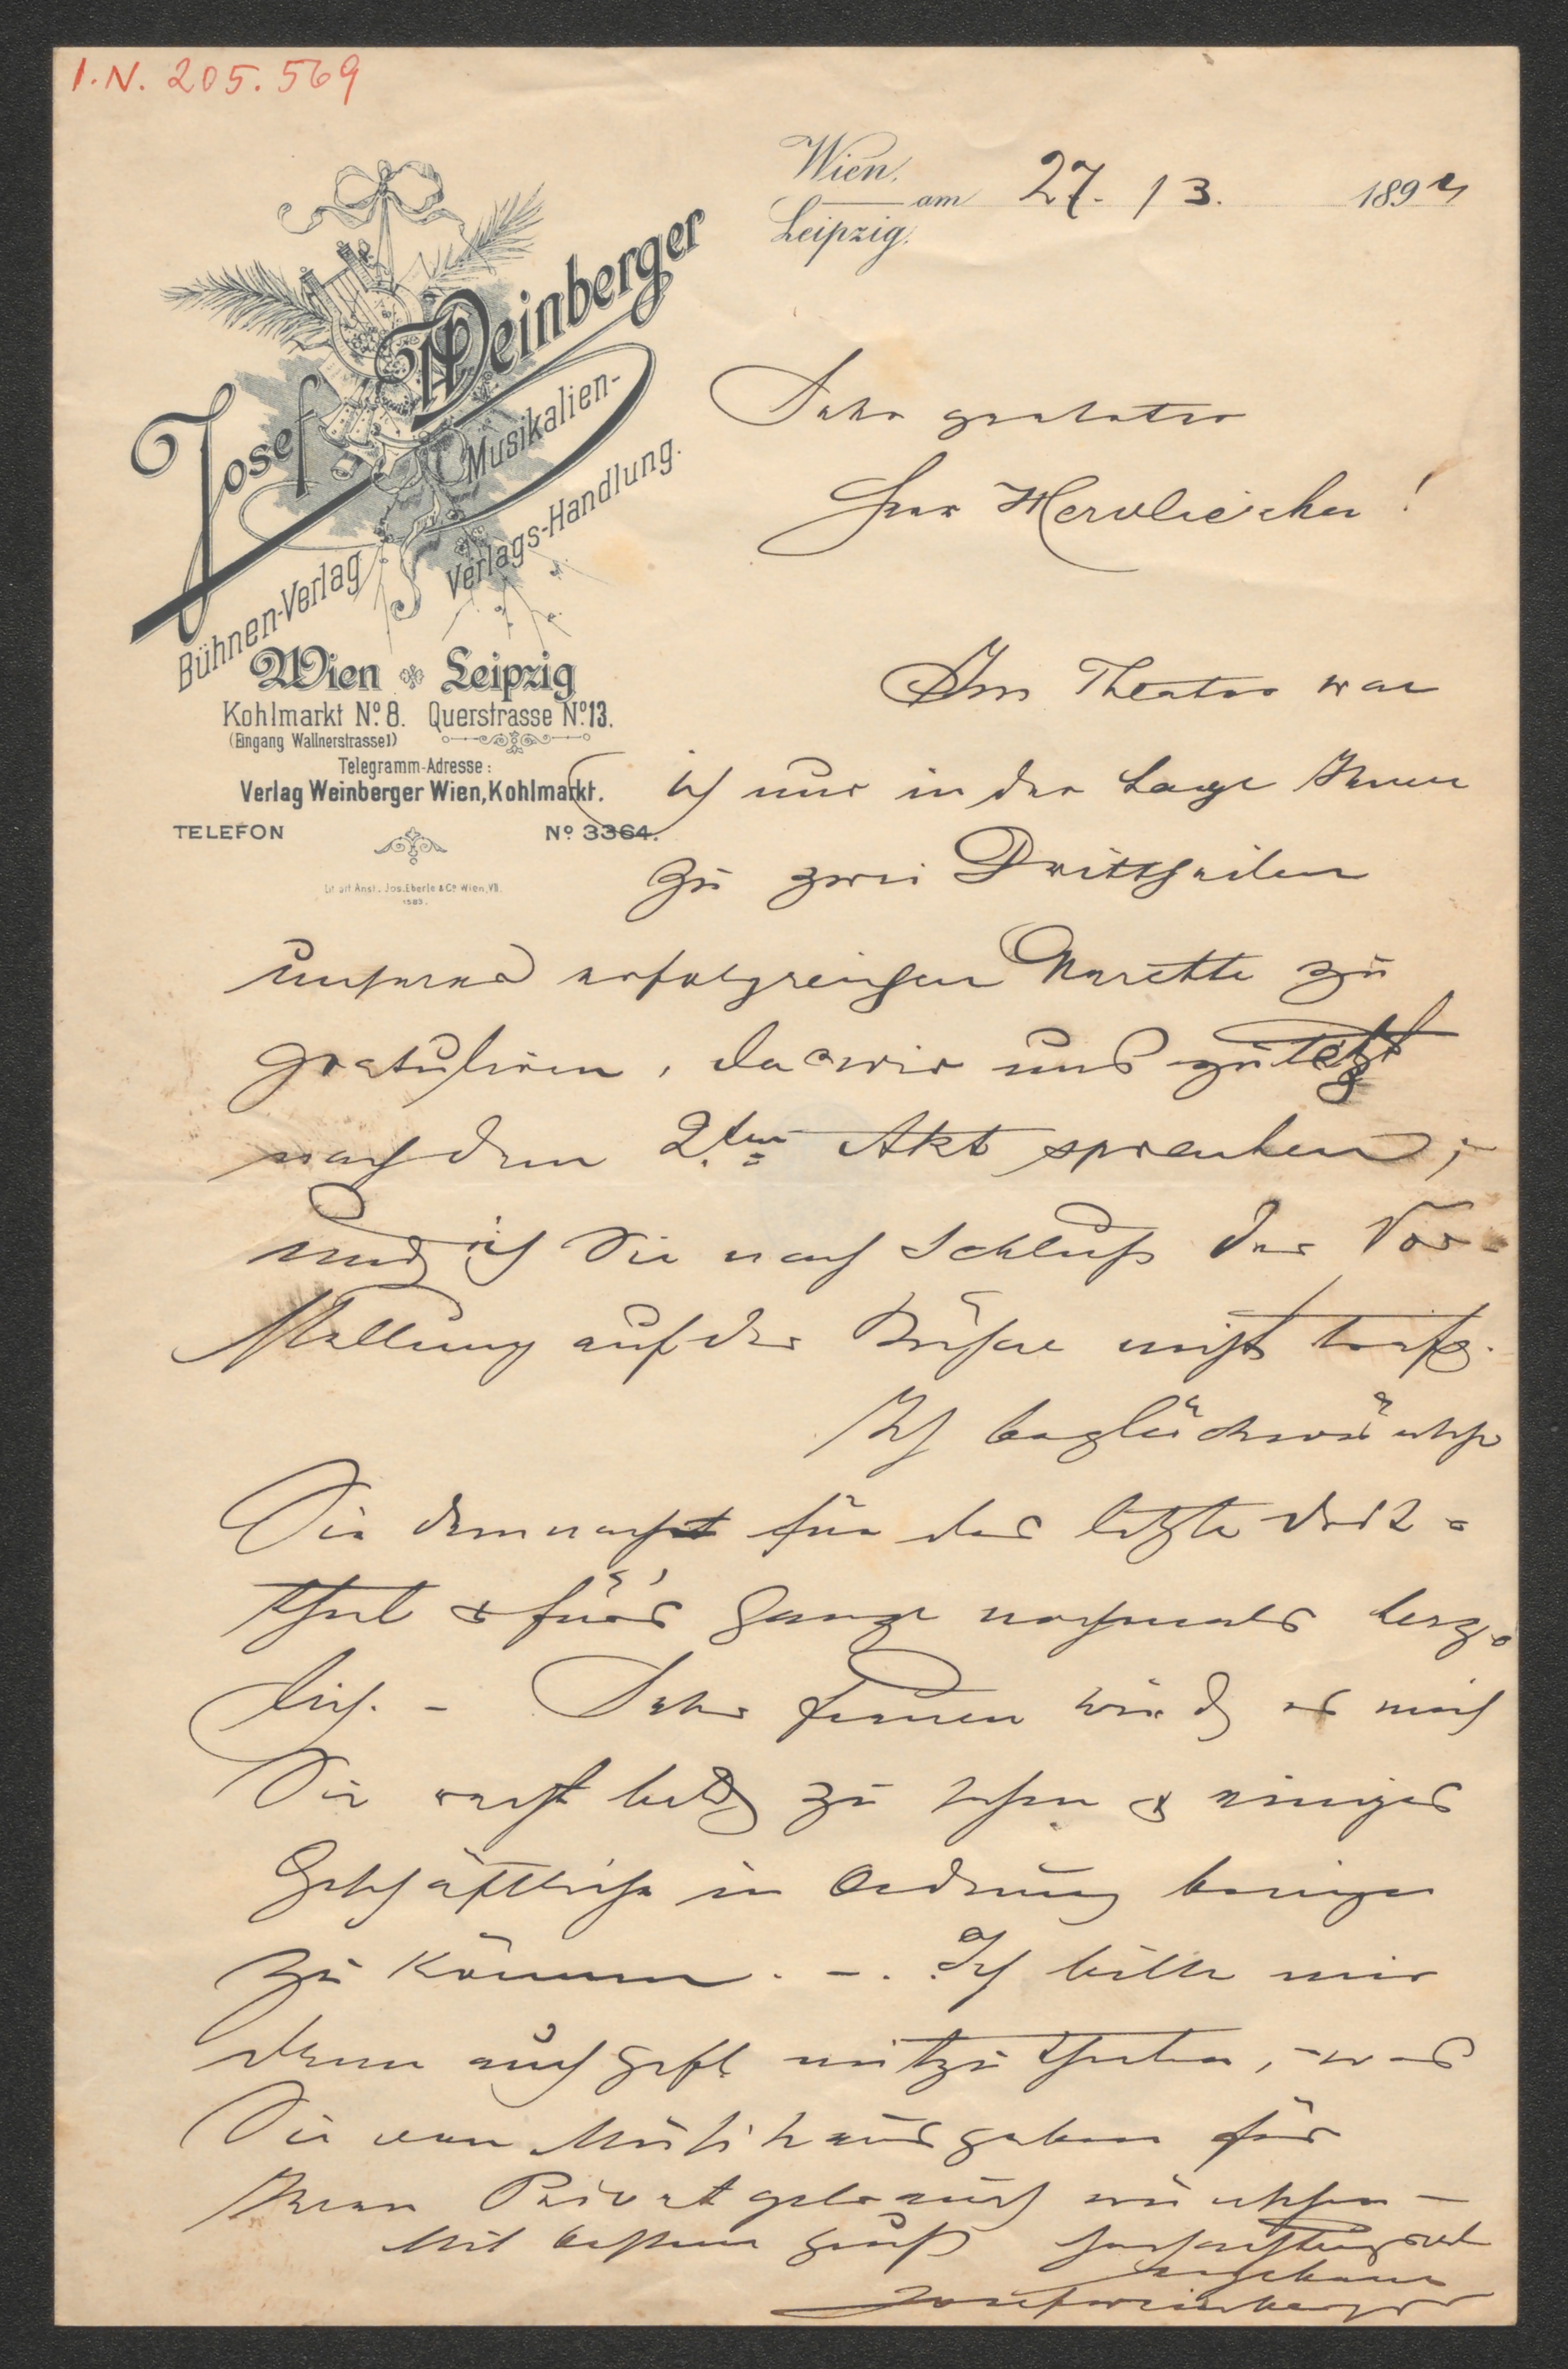 I.N. 205.569
Wien,
Leipzig, am 27. / 3. 189
Josef Weinberger
Musikalien-
Verlags-Handlung.
Bühnen-Verlag
Wien Leipzig
Kohlmarkt Nº 8. Querstrasse Nº 13.
(Eingang Wallnerstrasse 1)
Telegramm-Adresse:
Verlag Weinberger Wien, Kohlmarkt.
TELEFON Nº 3364.
Lit. art. Anst. Jos. Eberle & Cº Wien, VII.
Sehr geehrter
Herr
Im Theater war
ich nur in der Lage Ihnen
zu zwei Drittheilen
unseres erfolgreichen zu
gratuliren, da wir uns zuletzt
nach dem 2.ten Akt sprachen,
und ich Sie nach Schluß der Vor-
stellung auf der Bühne nicht traf.
Ich beglückwünsche
Sie demnach für das letzte Drit-
theil & für's Ganze nochmals herz-
lich. – Sehr freuen wird es mich
Sie recht bald zu sehen & einiges
Geschäftliche in Ordnung bringen
zu können. –. Ich bitte mir
denn auch gefl. mitzutheilen, was
Sie von Musikausgaben für
Ihren Privatgebrauch wünschen –
Mit bestem Gruß hochachtungsvoll
ergebener
Josef Weinberger